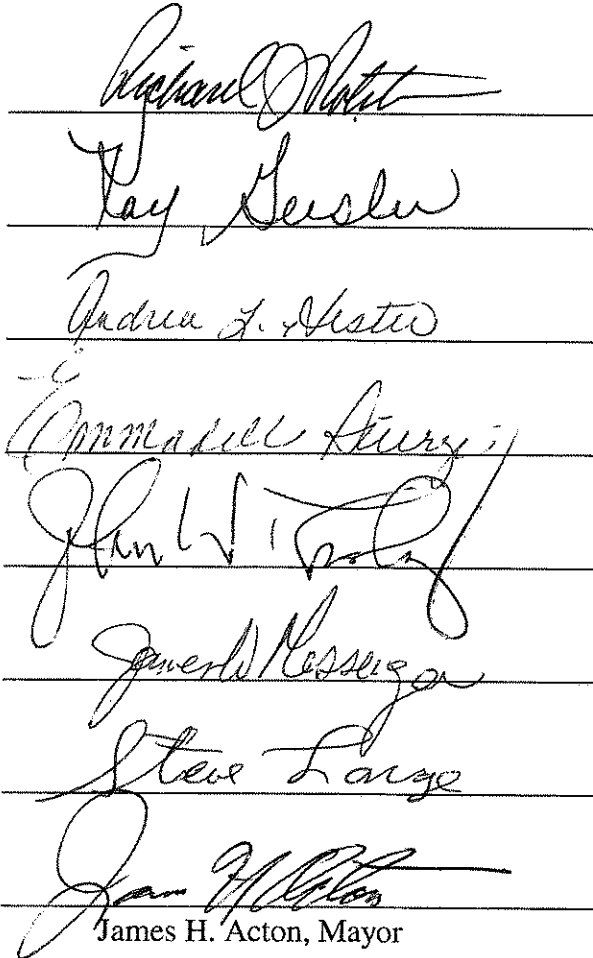 Richard
Kay Geisler
Andrea L. Hester
Emmadell
John W.
James W Messenger
Steve Large
James H Acton
James H. Acton, Mayor